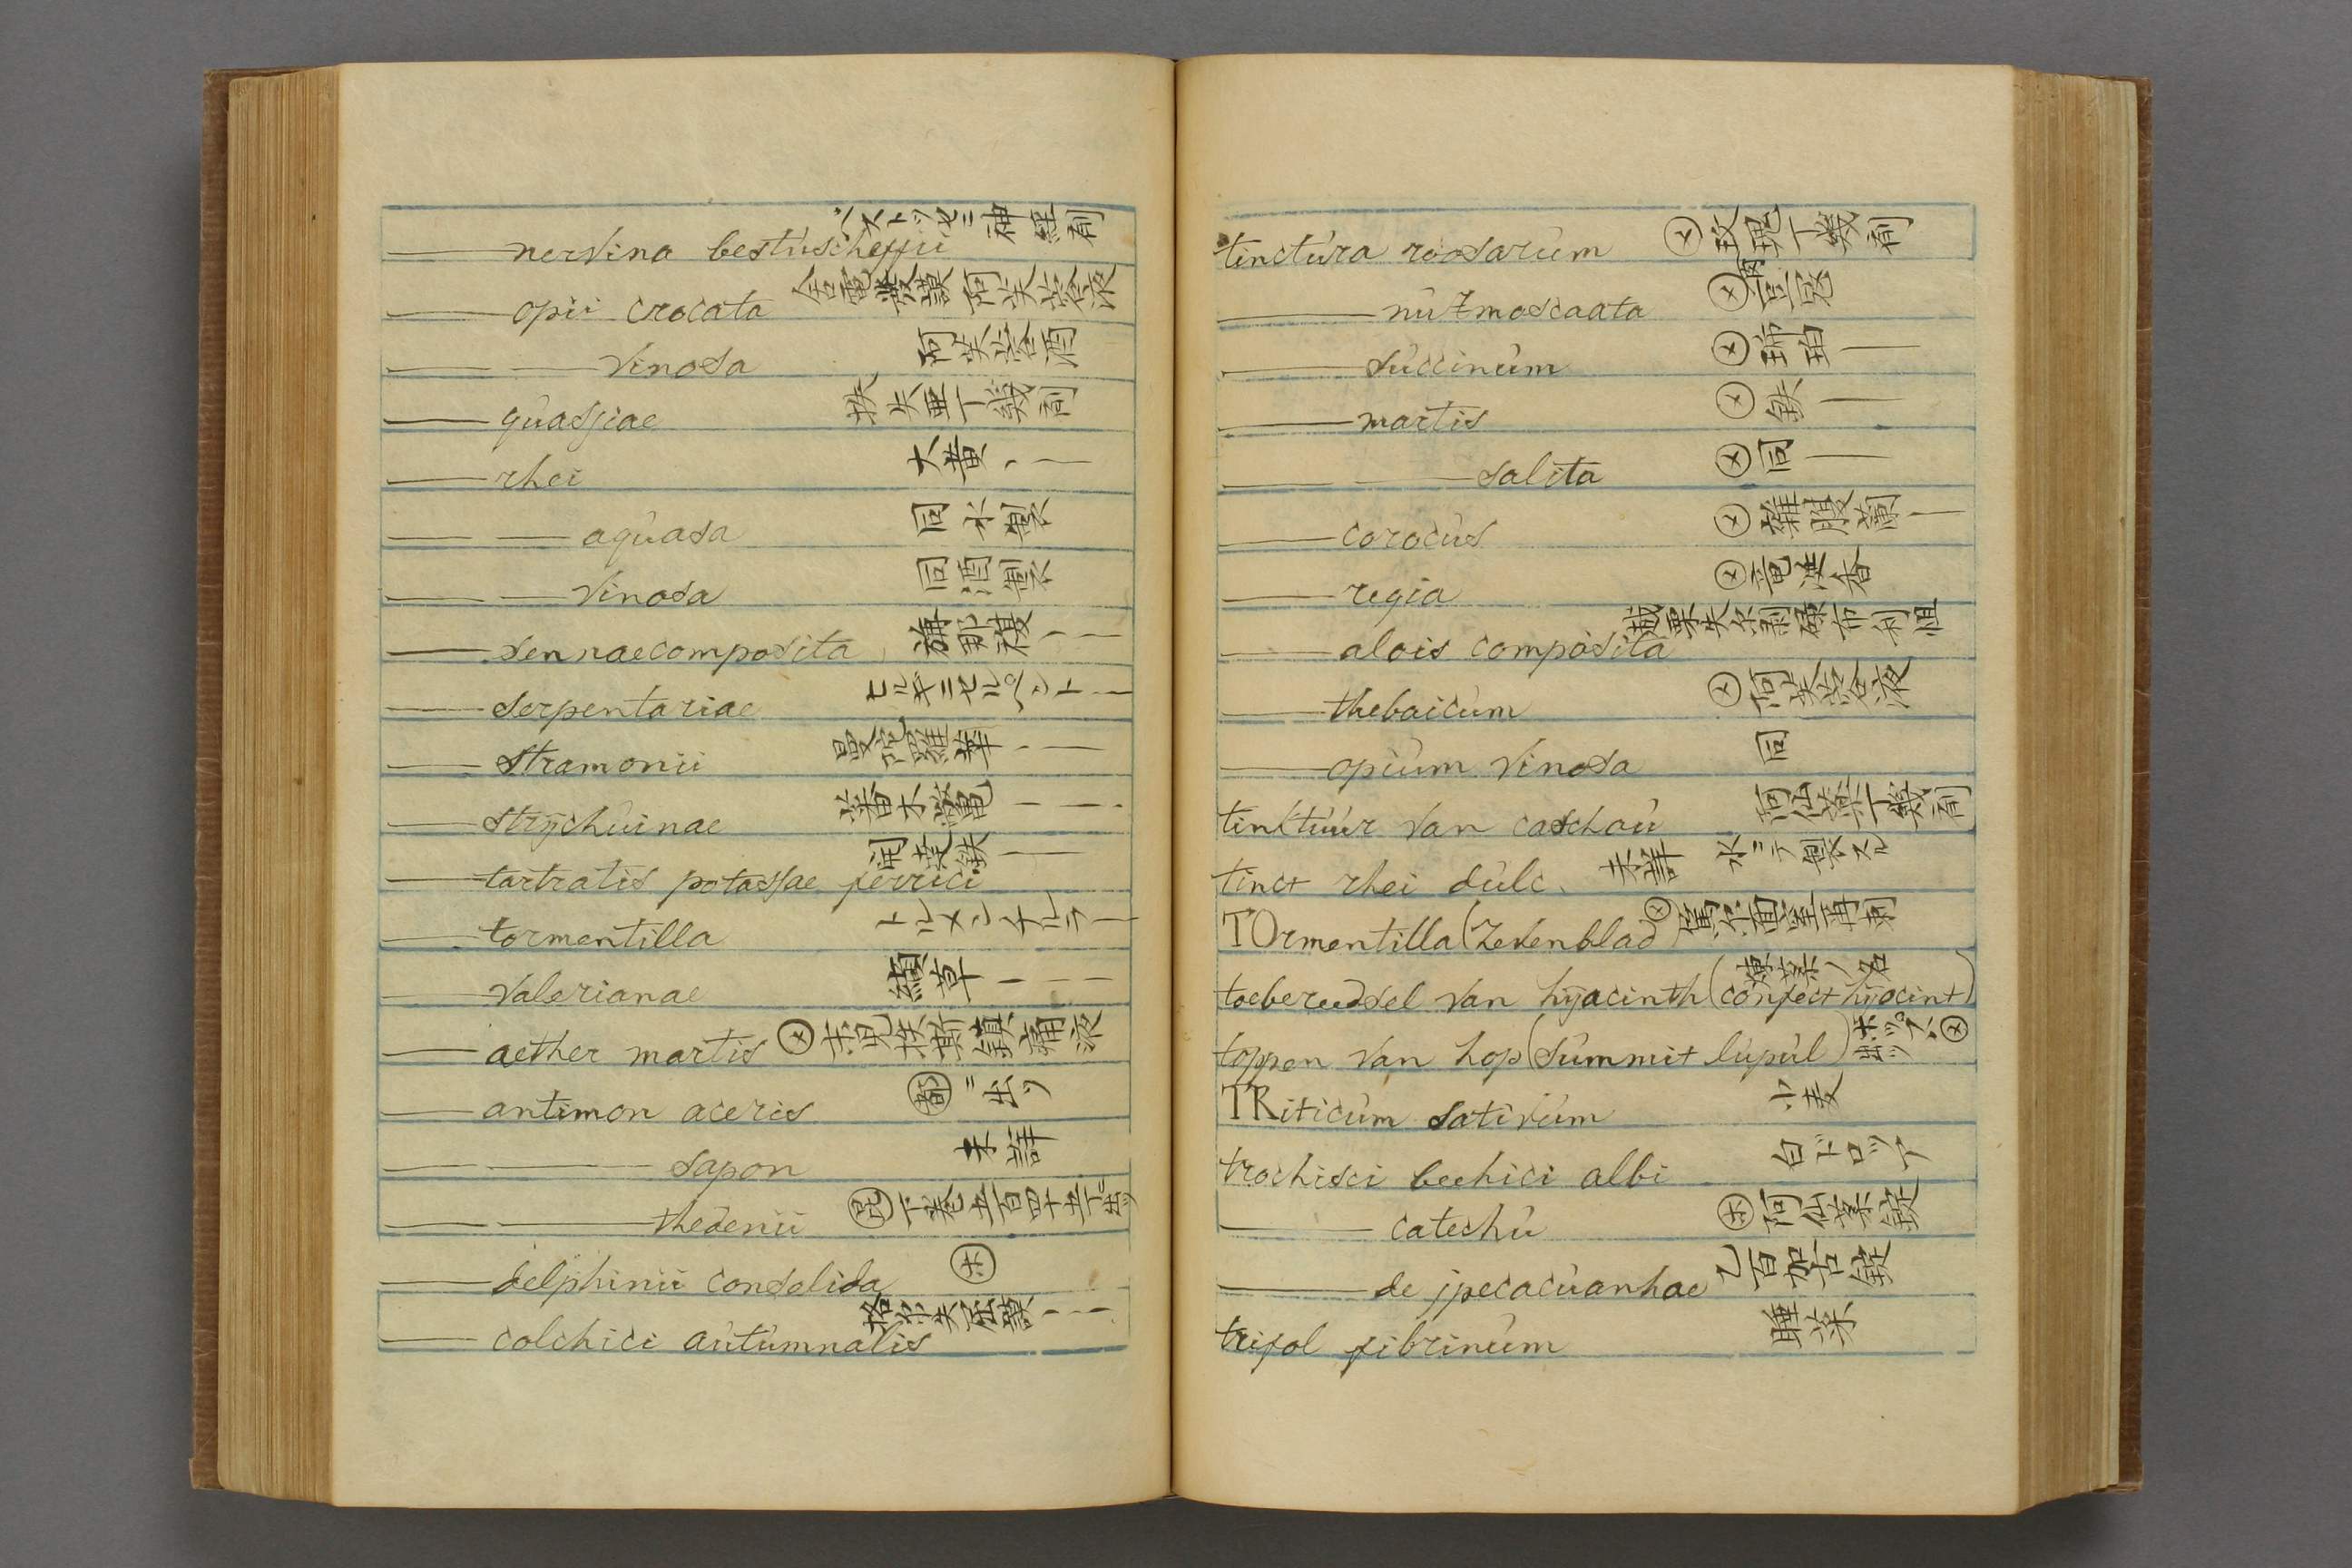 —— nervina bestuscheffii ベストツセニ神経剤
—— opii crocata 舎電 阿芙蓉液
—— —— vinosa 阿芙蓉酒
—— quassiae 丁幾剤
—— rhei 大黄、—
—— —— aquasa 同水製
—— —— vinosa 同酒製
—— sennaecomposita 旃那複、—
—— serpentariae ヒルギニセルペント—
—— stramonii 曼陀羅華、—
—— strijchuinae 蕃木鼈 — —
—— tartratis potassae ferrici 鉄 —
—— tormentilla トルメンチルラ—
—— valerianae 纈草 — —
—— aether martis ㋱ 鎮痛液
—— antimon aceris ニ出ツ
—— —— sapon 未詳
—— —— thedenii 下巻五百四十五丁ニ出ツ
—— delphinii consolida ㋭
—— colchici autumnalis — —
tinctura roosarum ㋱ 玫瑰丁幾剤
—— nutmoscaata ㋱ 肉豆冠
—— succinum ㋱ 琥珀 —
—— martis ㋱ 鉄 —
—— —— salita ㋱ 同 —
—— corocus ㋱ 雑腹蘭 —
—— regia ㋱ 竜涎香
—— alois composita
—— thebaicum ㋱ 阿芙蓉液
—— opium vinosa 同
tinktuur van caschou 阿仙薬丁幾剤
tinct rhei dulc. 未詳 水ニテ製スル
TOrmentilla (Zevenblad) ㋱
toebereedsel van hijacinth (confect hijocint) 煉薬ノ名
toppen van hop (summit lupul) ホップ ㋱
TRiticum sativum 小麦
trochisci bechici albi 白ドロップ
—— catechu ㋭ 阿仙薬錠
—— de jpecacuanhae 乙百加古錠
trifol fibrinum 睡菜